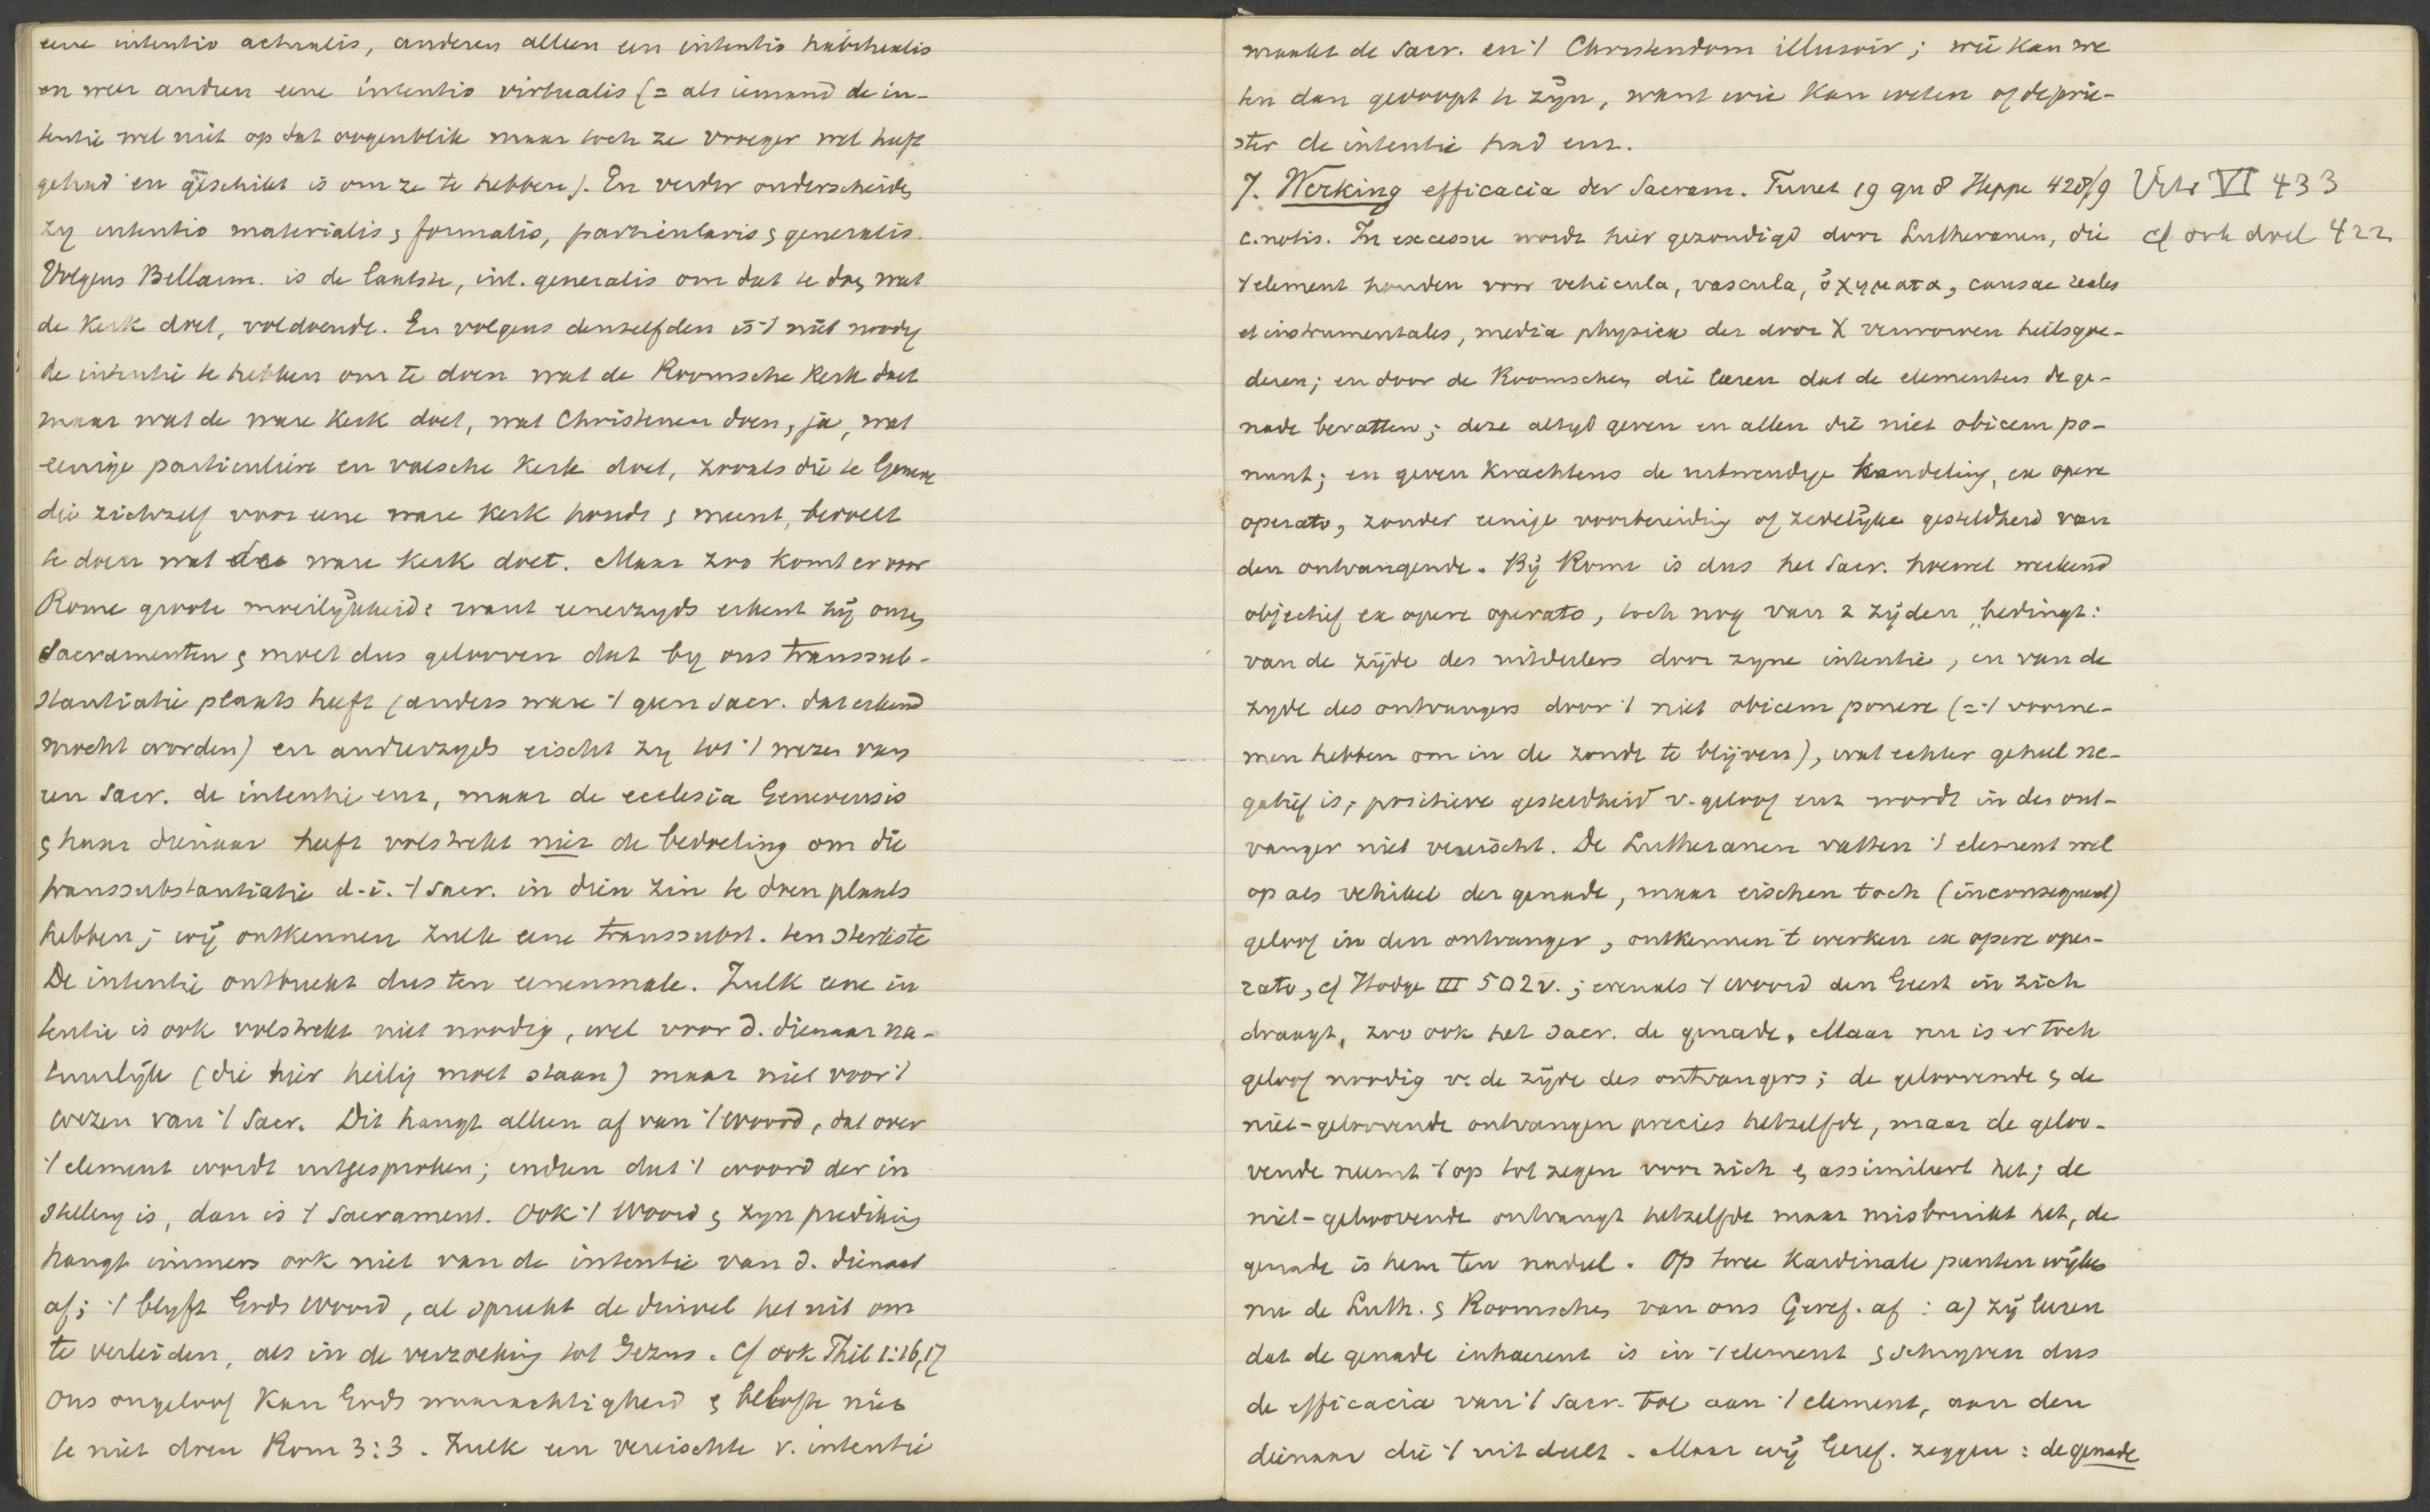 eene intentio actualis, anderen alleen een intentio habitualis
en weer anderen eene intentio virtualis (= als iemand de in-
tentie wel niet op dat oogenblik maar toch ze vroeger wel heeft
gehad en geschikt is om ze te hebben). En verder onderscheiden
zij intentio materialis & formalis, particularis & generalis.
Volgens Bellarm. is de laatste, int. generalis om dat te doen wat
de Kerk doet, voldoende. En volgens denzelfden is 't niet noodig
de intentie te hebben om te doen wat de Roomsche Kerk doet
maar wat de ware Kerk doet, wat Christenen doen, ja, wat
eenige particuliere en valsche Kerk doet, zooals die te Geneve
die zichzelf voor eene ware Kerk houdt & meent, bedoelt
te doen wat de ware Kerk doet. Maar zoo komt er voor
Rome groote moeilijkheid: want eenerzyds erkent zij onze
Sacramenten & moet dus gelooven dat by ons transsub-
stantiatie plaats heeft (anders ware 't geen Sacr. dat erkend
mocht worden) en anderzyds eischt zy tot 't wezen van
een Sacr. de intentie enz, maar de ecclesia Genevensis
& haar dienaar heeft volstrekt niet de bedoeling om die
transsubstantiatie d.i. 't Sacr. in dien zin te doen plaats
hebben; wij ontkennen zulk eene transsubst. ten sterkste
De intentie ontbreekt dus ten eenenmale. Zulk eene in
tentie is ook volstrekt niet noodig, wel voor d. dienaar na-
tuurlijk (die hier heilig moet staan) maar niet voor 't
wezen van 't Sacr. Dit hangt alleen af van 't Woord, dat over
't element wordt uitgesproken; indien dat 't woord der in
stelling is, dan is 't Sacrament. Ook 't Woord & zyn prediking
hangt immers ook niet van de intentie van d. dienaar
af; 't blyft Gods Woord, al spreekt de duivel het uit om
te verleiden, als in de verzoeking tot Jezus. cf ook Phil 1:16,17
Ons ongeloof kan Gods waarachtigheid & belofte niet
te niet doen Rom 3:3. Zulk een vereischte v. intentie
maakt de Sacr. en 't Christendom illusoir; wie kan we
ten dan gedoopt te zijn, want wie kan weten of de prie-
ster de intentie had enz.
7. Werking efficacia der Sacram. Turret 19 qu 8 Heppe 428/9 Urts VI 433
c. notis. In excessu wordt hier gezondigd door Lutheranen, die cf ook deel 422
't element houden voor vehicula, vascula, ὀχηματα, causae reales
et instrumentales, media physica der door X verworven heilsgoe-
deren; en door de Roomschen die leeren dat de elementen de ge-
nade bevatten; deze altyd geven en allen die niet obicem po-
nunt; en geven krachtens de uitwendige handeling, ex opere
operato, zonder eenige voorbereiding of zedelijke gesteldheid van
den ontvangende. Bij Rome is dus het Sacr. hoewel werkend
objectief ex opere operato, toch nog van 2 zijden bedingt:
van de zijde des uitdeelers door zyne intentie, en van de
zyde des ontvangers door 't niet obicem ponere (= 't voorne-
men hebben om in de zonde te blijven), wat echter geheel ne-
gatief is; positieve gesteldheid v. geloof enz wordt in den ont-
vanger niet vereischt. De Lutheranen vatten 't element wel
op als vehikel der genade, maar eischen toch (inconsequent)
geloof in den ontvanger, ontkennen 't werken ex opere ope-
rato, cf Hodge III 502v.; evenals 't Woord den Geest in zich
draagt, zoo ook het Sacr. de genade. Maar nu is er toch
geloof noodig v. de zijde des ontvangers; de geloovende & de
niet-geloovende ontvangen precies hetzelfde, maar de geloo-
vende neemt 't op tot zegen voor zich & assimileert het; de
niet-geloovende ontvangt hetzelfde maar misbruikt het, de
genade is hem ten nadeel. Op twee kardinale punten wijken
nu de Luth. & Roomschen van ons Geref. af: a) zij leeren
dat de genade inhaerent is in 't element & schryven dus
de efficacia van 't Sacr. toe aan 't element, aan den
dienaar die 't uitdeelt. Maar wij Geref. zeggen: de genade